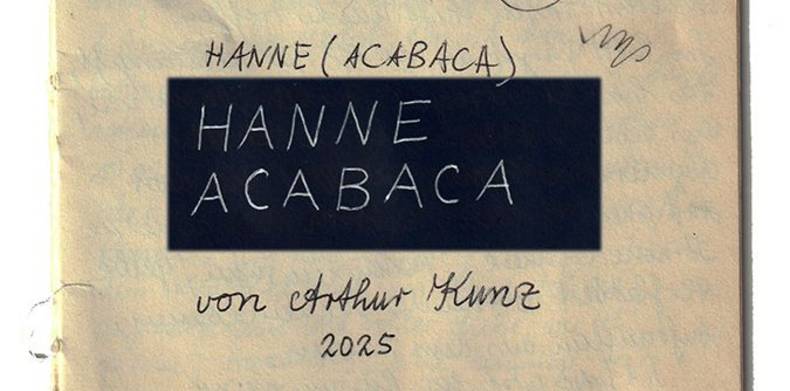 HANNE (ACABACA)
HANNE
ACABACA
von Arthur Kunz
2025